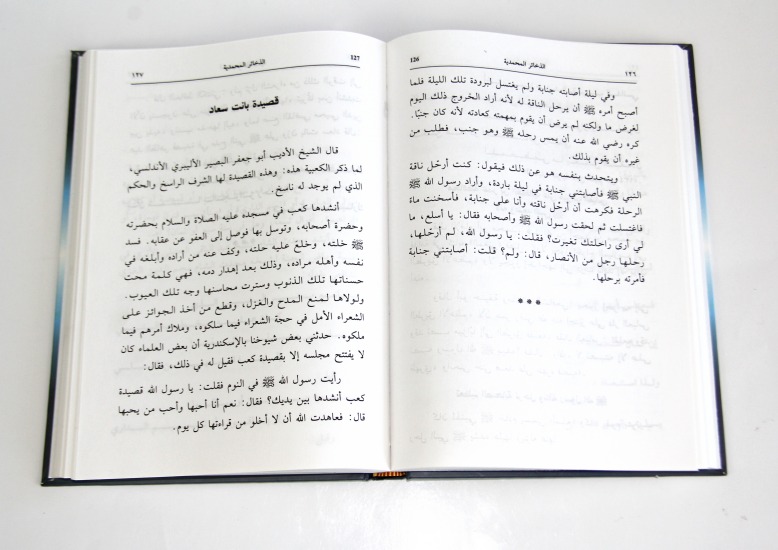 ١٢٦ الذخائر المحمدية 126
وفي ليلة أصابته جنابة ولم يغتسل لبرودة تلك الليلة فلما
أصبح أمره ﷺ أن يرحل الناقة له لأنه أراد الخروج ذلك اليوم
لغرض ما ولكنه لم يرض أن يقوم بمهمته كعادته لأنه كان جنبًا.
كره رضي الله عنه أن يمس رحله ﷺ وهو جنب، فطلب من
غيره أن يقوم بذلك.
ويتحدث بنفسه هو عن ذلك فيقول: كنت أرحّل ناقة
النبي ﷺ فأصابتني جنابة في ليلة باردة، وأراد رسول الله ﷺ
الرحلة فكرهت أن أرحّل ناقته وأنا على جنابة، فأسخنت ماء
فاغتسلت ثم لحقت رسول الله ﷺ وأصحابه فقال: يا أسلع، ما
لي أرى راحلتك تغيرت؟ فقلت: يا رسول الله، لم أرحّلها،
رحلها رجل من الأنصار، قال: ولم؟ قلت: أصابتني جنابة
فأمرته برحلها.
***
127 الذخائر المحمدية ١٢٧
قصيدة بانت سعاد
قال الشيخ الأديب أبو جعفر البصير الألبيري الأندلسي،
لما ذكر الكعبية هذه: وهذه القصيدة لها الشرف الراسخ والحكم
الذي لم يوجد له ناسخ.
أنشدها كعب في مسجده عليه الصلاة والسلام بحضرته
وحضرة أصحابه، وتوسل بها فوصل إلى العفو عن عقابه. فسد
ﷺ خلته، وخلع عليه حلته، وكف عنه من أراده وأبلغه في
نفسه وأهله مراده، وذلك بعد إهدار دمه، فهي كلمة محت
حسناتها تلك الذنوب وسترت محاسنها وجه تلك العيوب.
ولولاها لمنع المدح والغزل، وقطع من أخذ الجوائز على
الشعراء الأمل في حجة الشعراء فيما سلكوه، وملاك أمرهم فيما
ملكوه. حدثني بعض شيوخنا بالإسكندرية أن بعض العلماء كان
لا يفتتح مجلسه إلا بقصيدة كعب فقيل له في ذلك، فقال:
رأيت رسول الله ﷺ في النوم فقلت: يا رسول الله قصيدة
كعب أنشدها بين يديك؟ فقال: نعم أنا أحبها وأحب من يحبها
قال: فعاهدت الله أن لا أخلو من قراءتها كل يوم.